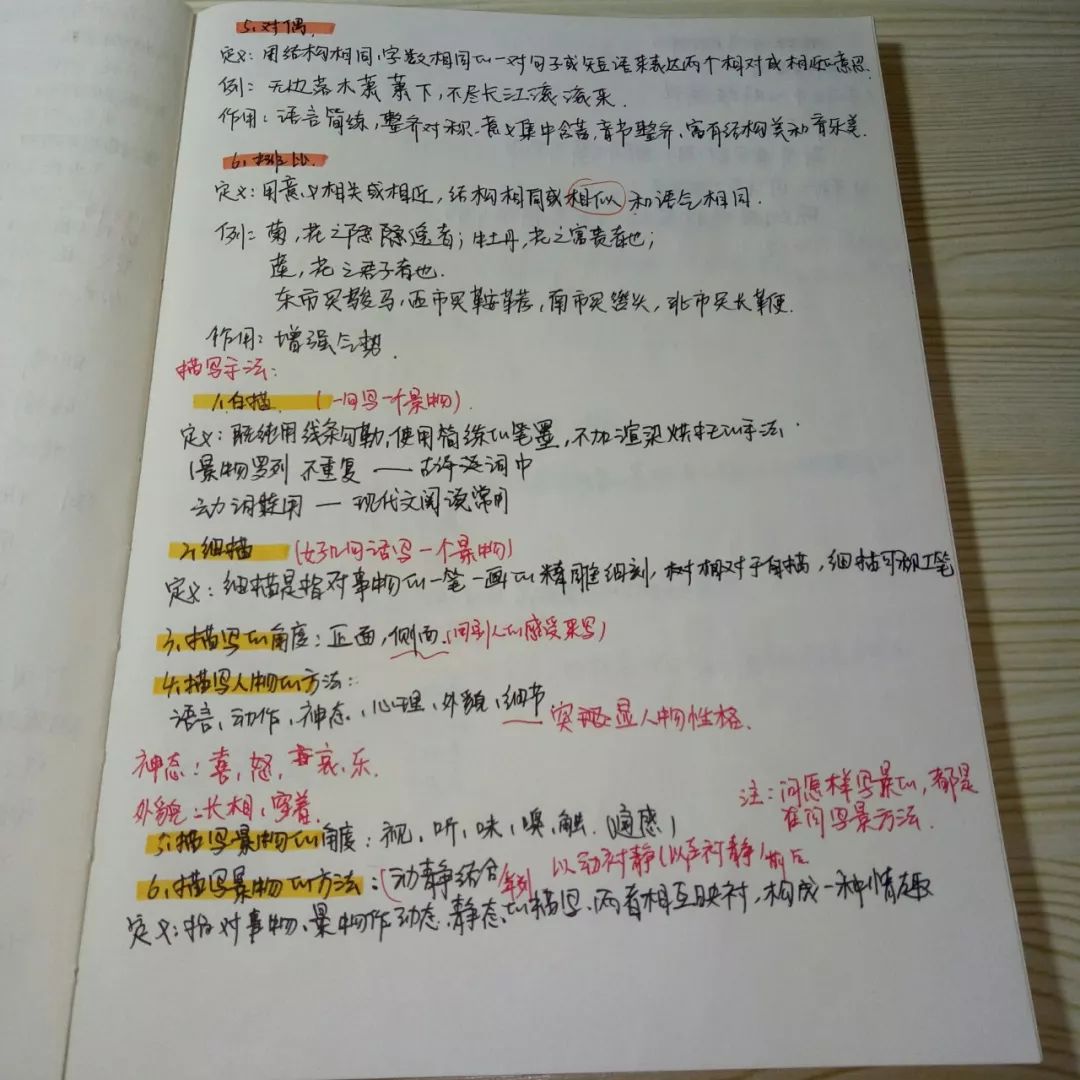 5、对偶
定义：用结构相同、字数相同的一对句子或短语来表达两个相对或相近的意思.
例：无边落木萧萧下,不尽长江滚滚来.
作用：语言简练,整齐对称.意义集中含蓄,音节整齐、富有结构美和音乐美.
6、排比.
定义：用意义相关或相近,结构相同或相似和语气相同.
例：菊,花之隐逸者；牡丹,花之富贵者也；
莲,花之君子者也.
东市买骏马,西市买鞍鞯,南市买辔头,北市买长鞭.
作用：增强气势.
描写手法：
1、白描 (一句写一个景物).
定义：纯用线条勾勒,使用简练的笔墨,不加渲染烘托的手法.
景物罗列 不重复 — 古诗词中
动词转用 — 现代文阅读常用
2、细描 (好几句话写一个景物)
定义：细描是指对事物的一笔一画的精雕细刻,相对于白描,细描可称工笔
3、描写的角度：正面,侧面(问别人的感受来写)
4、描写人物的方法：
语言、动作、神态、心理、外貌、细节 — 突显人物性格.
神态：喜,怒,哀、乐.
外貌：长相、穿着.
注：问怎样写景的,都是
在问写景方法.
5、描写景物的角度：视、听、味、嗅、触.(通感)
6、描写景物的方法：(动静结合 以动衬静(以声衬静)
定义：指对事物、景物作动态、静态的描写.两者相互映衬,构成一种情趣